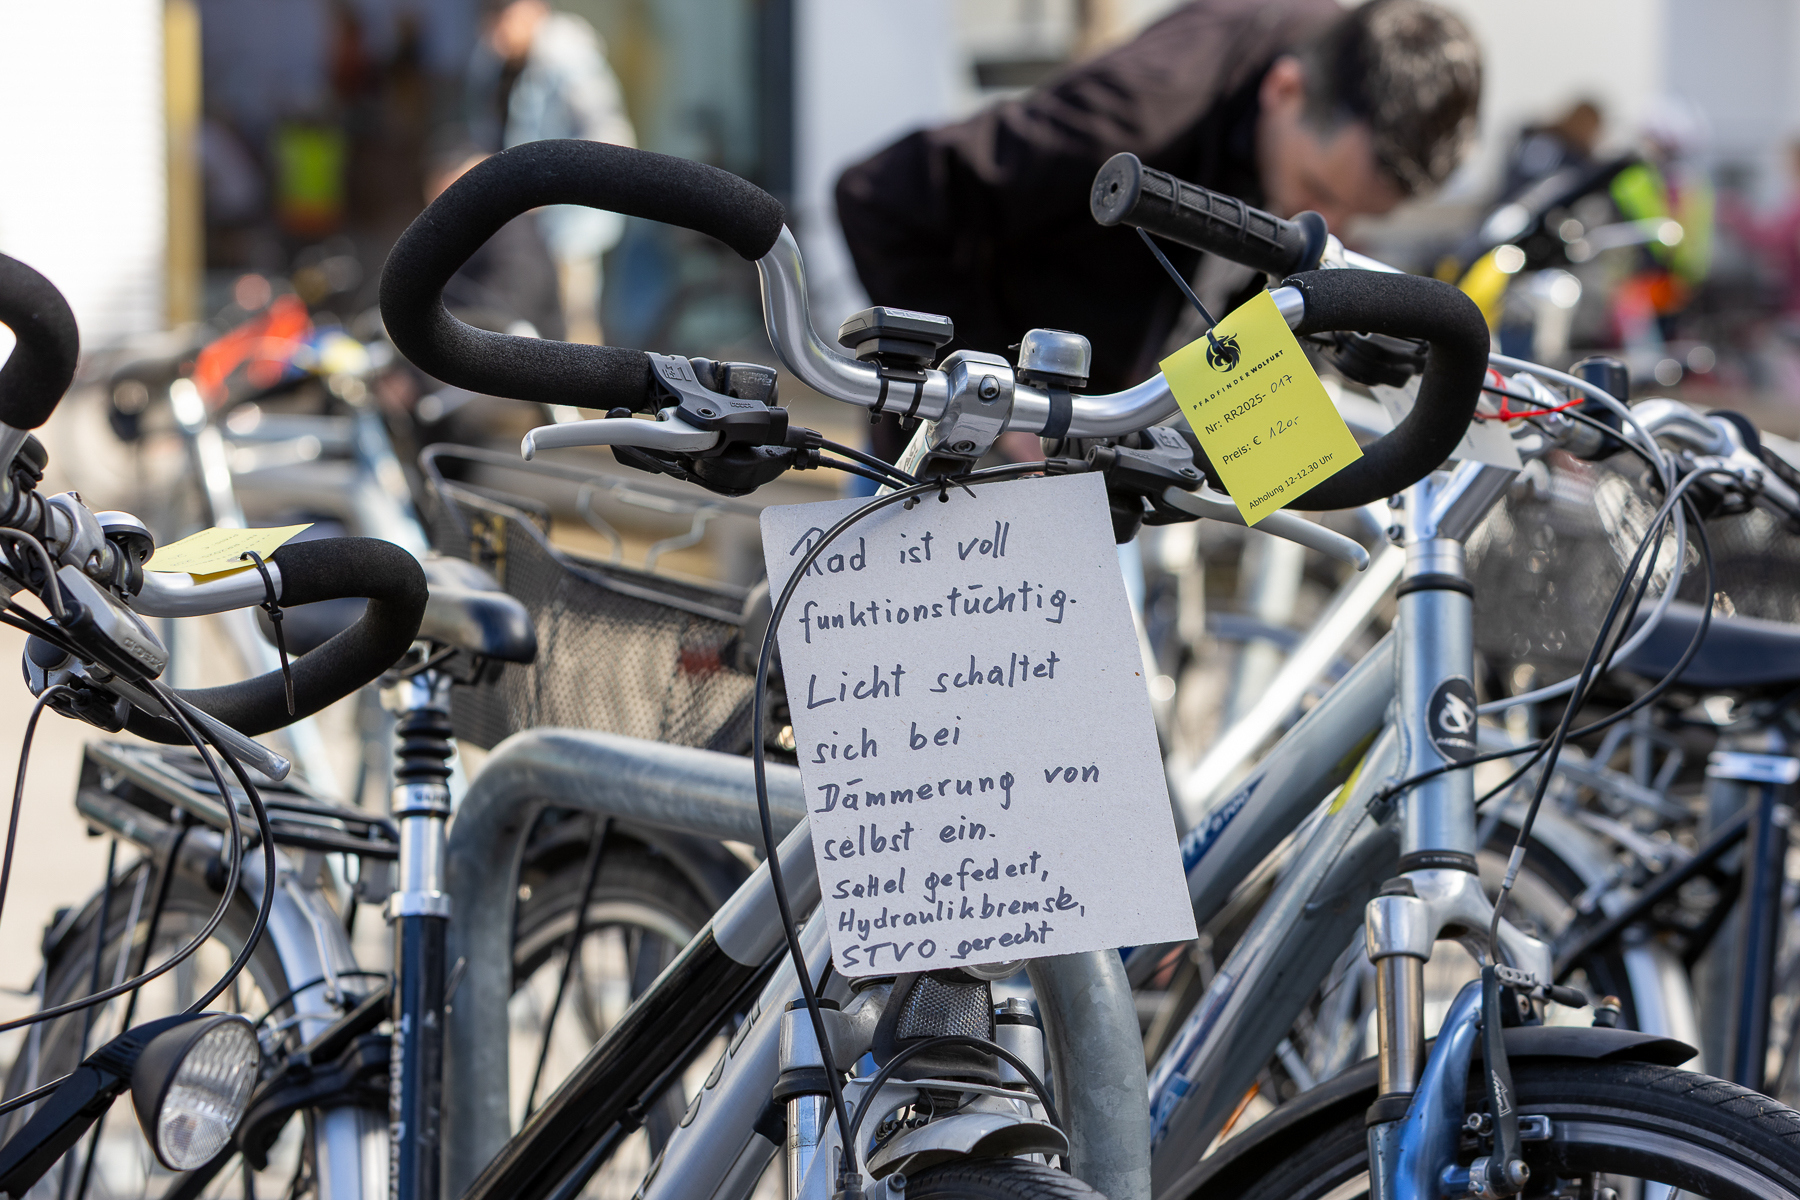 Rad ist voll
funktionstüchtig.
Licht schaltet
sich bei
Dämmerung von
selbst ein.
Sattel gefedert,
Hydraulikbremse,
STVO gerecht
PFADFINDERWOLFURT
Nr: RR2025- 017
Preis: € 120,-
Abholung 12-12.30 Uhr